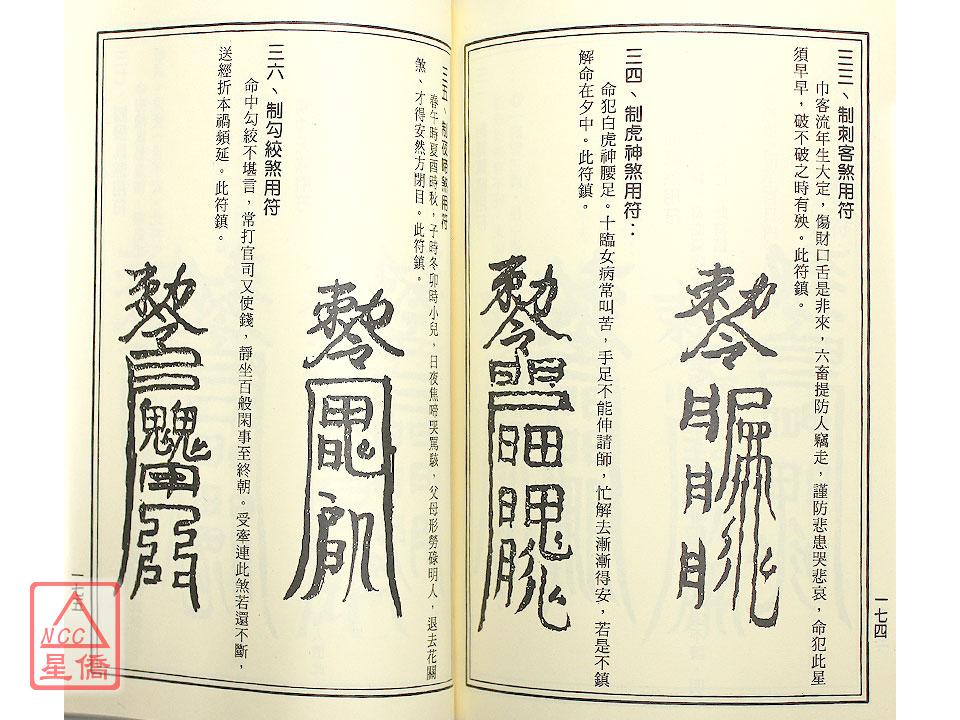 三三、制刺客煞用符
巾客流年生大定，傷財口舌是非來，六畜提防人竊走，謹防悲患哭悲哀，命犯此星
須早早，破不破之時有殃。此符鎮。
三四、制虎神煞用符：
命犯白虎神腰足。十臨女病常叫苦，手足不能伸請師，忙解去漸漸得安，若是不鎮
解命在夕中。此符鎮。
一七四
三五、制夜啼煞用符
春午時夏酉時秋，子時冬卯時小兒，日夜焦啼哭罵駭，父母形勞碌明人，退去花關
煞、才得安然方閉目。此符鎮。
三六、制勾絞煞用符
命中勾絞不堪言，常打官司又使錢，靜坐百般閑事至終朝。受牽連此煞若還不斷，
送經折本禍頻延。此符鎮。
一七五
NCC
星僑